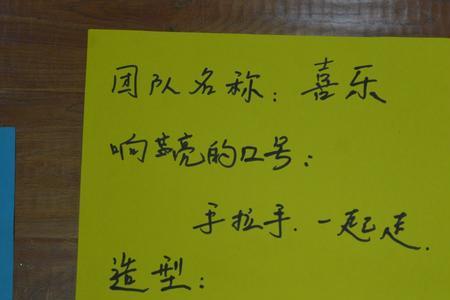 团队名称：喜乐
响亮的口号：
手拉手、一起走.
造型：